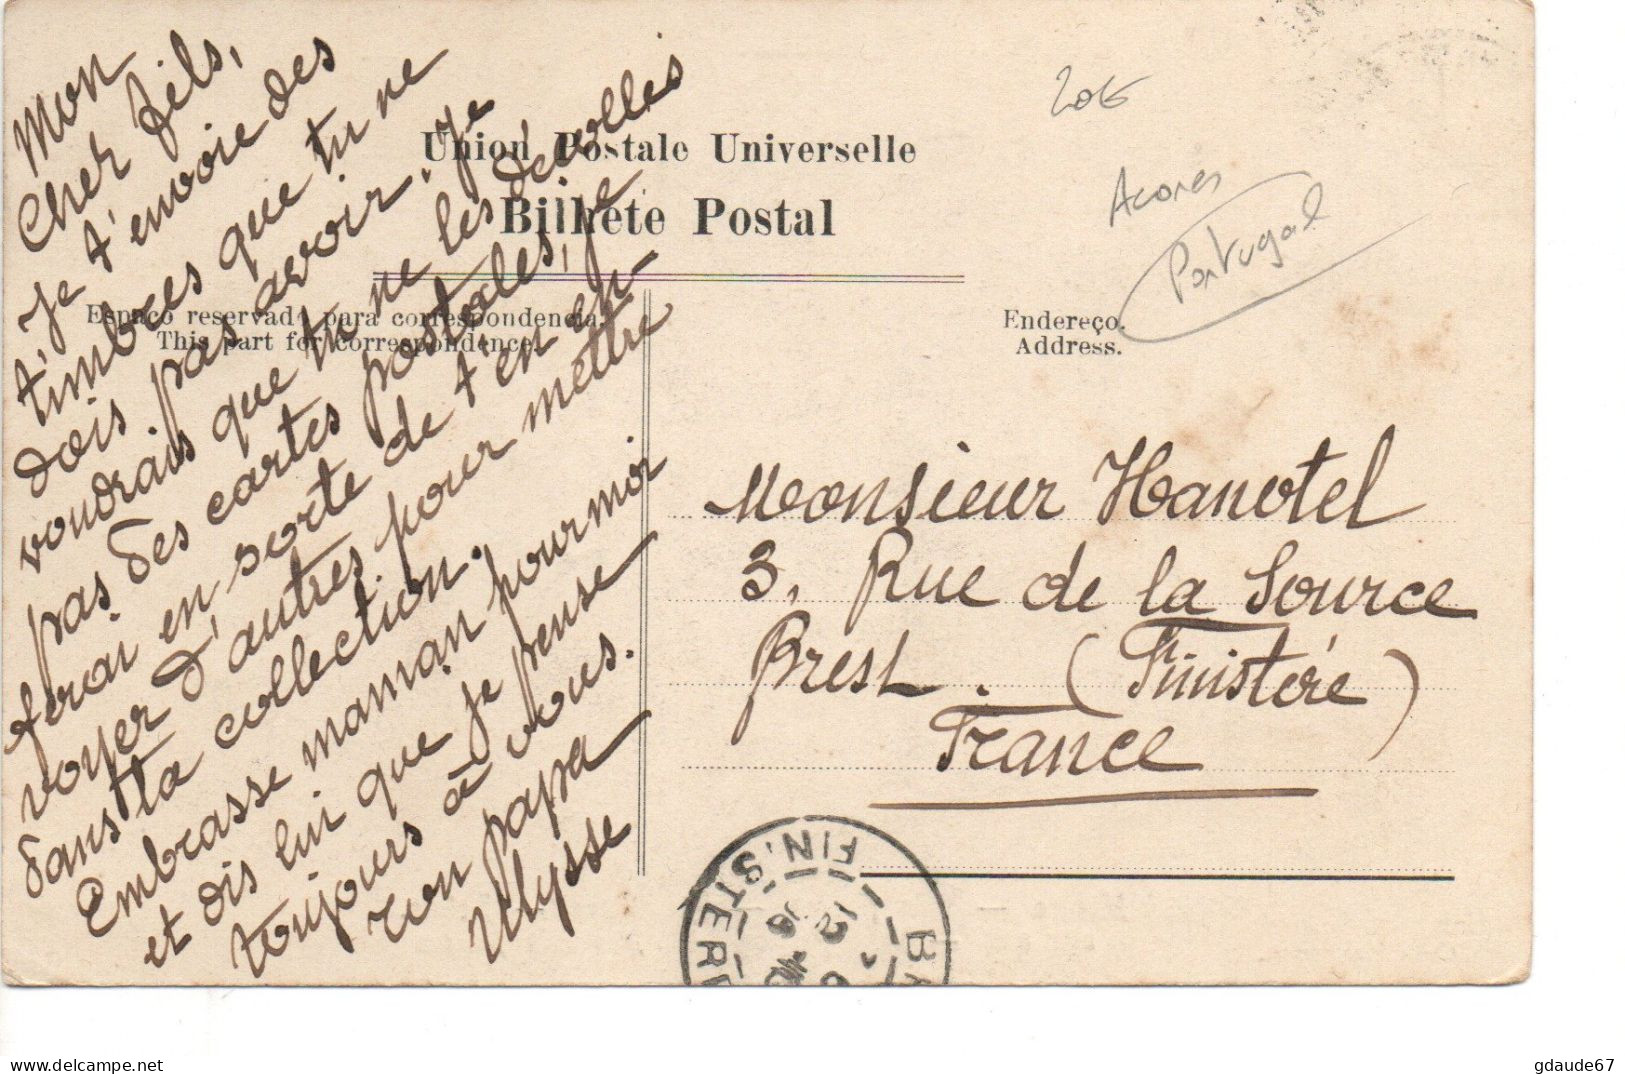 Mon
Cher fils,
Je t'envoie des
timbres que tu ne
dois pas avoir. Je
voudrais que tu ne les décolles
pas des cartes postales, je
ferai en sorte de t'en en-
voyer d'autres pour mettre
dans ta collection.
Embrasse maman pour moi
et dis lui que je pense
toujours à vous.
Ton papa
Ulysse
Union Postale Universelle
Bilhete Postal
Espaço reservado para correspondencia.
This part for correspondence.
20€
Acores
Portugal
Endereço.
Address.
Monsieur Hanotel
3, Rue de la Source
Brest. (Finistère)
France
FINISTERE
delcampe.net
gdaude67